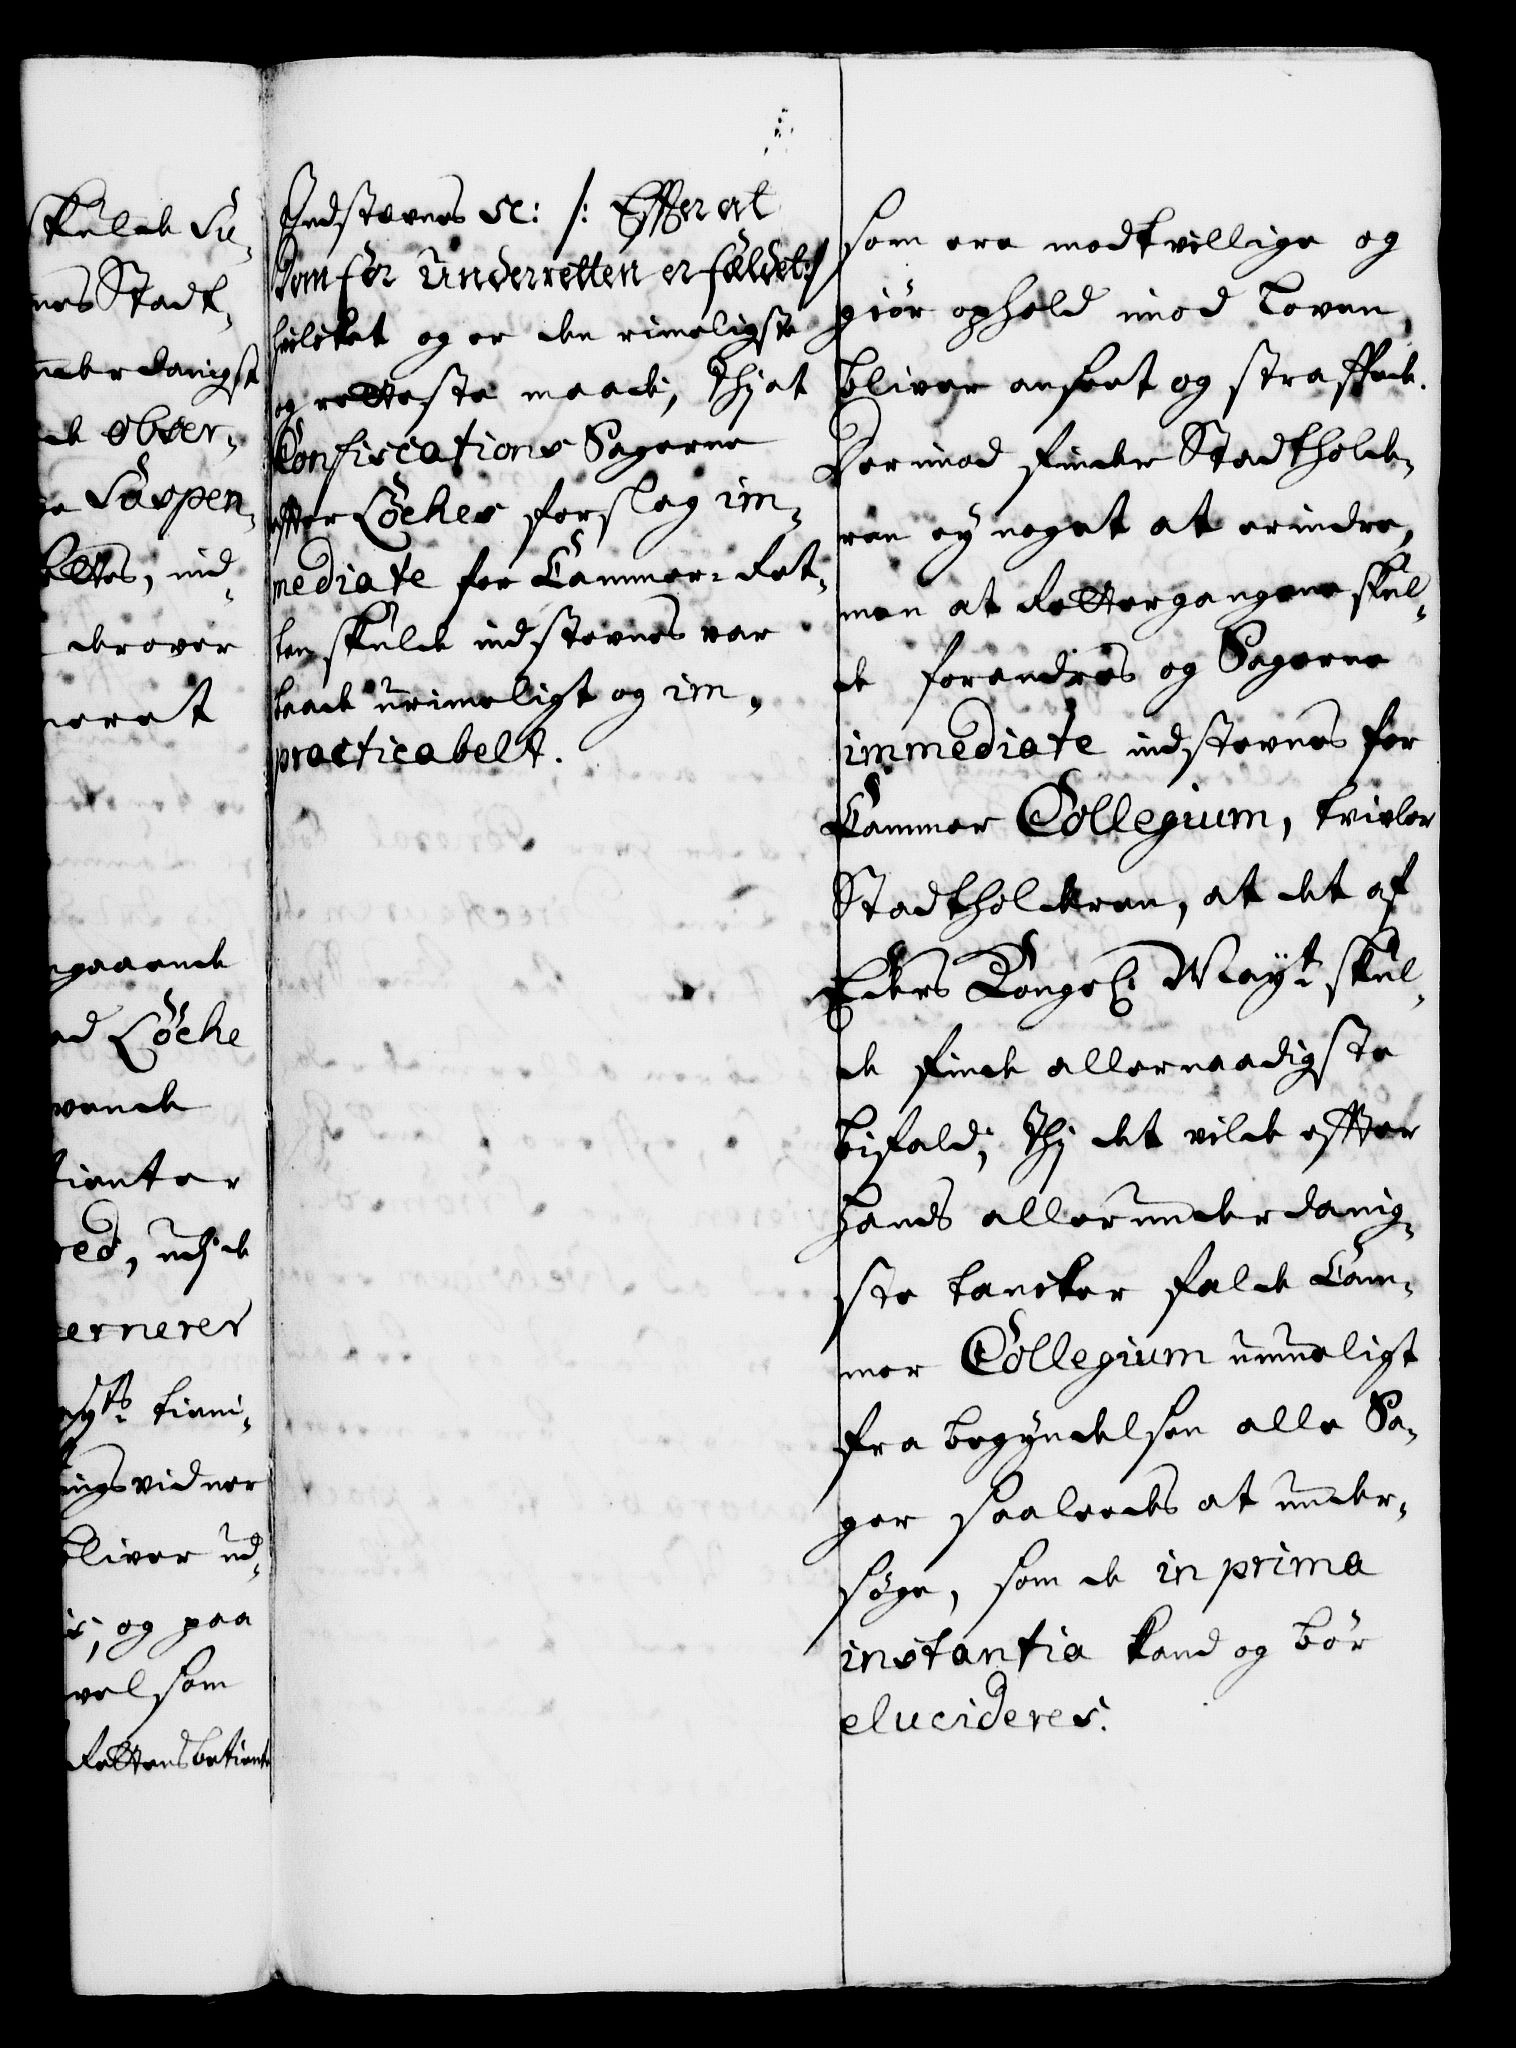 skulde Su-
nes Stadt-
underdanigst
de obser-
Suspen-
ind-
derover
neret
ngaaende
ed Löche
vende
tienter
red, udj de
cernerer
Mayts tieni-
tings vidner
bliver ud-
og paa
vel som
Rettens betiente
Indstevnes etc: /: Effter at
Dom for Underretten er fældet :/
hvilcket og er den rimeligste
og retteste maade, thj at
Confiscations Sagerne
effter Löches forslag im-
mediate for Cammer-Ret-
ten skulde indstevnes var
baade urimeligt og im-
practicabelt.
som ere modtvillige og
giör ophold imod Loven,
bliver anseet og straffede.
Derimod finder Stadtholde-
ren ey noget at erindre,
men at Rettergangene skul-
de forandres og Sagerne
immediate indstevnes for
Cammer Collegium, tvivler
Stadtholderen, at det af
Eders Kongel: Mayt: skul-
de finde allernaadigste
bifald; thj det vilde effter
hands allerunderdanig-
ste tancker falde Cam-
mer Collegium umueligt
fra begyndelsen alle Sa-
ger saaledes at under-
søge, som de in prima
instantia kand og bör
elucideres.